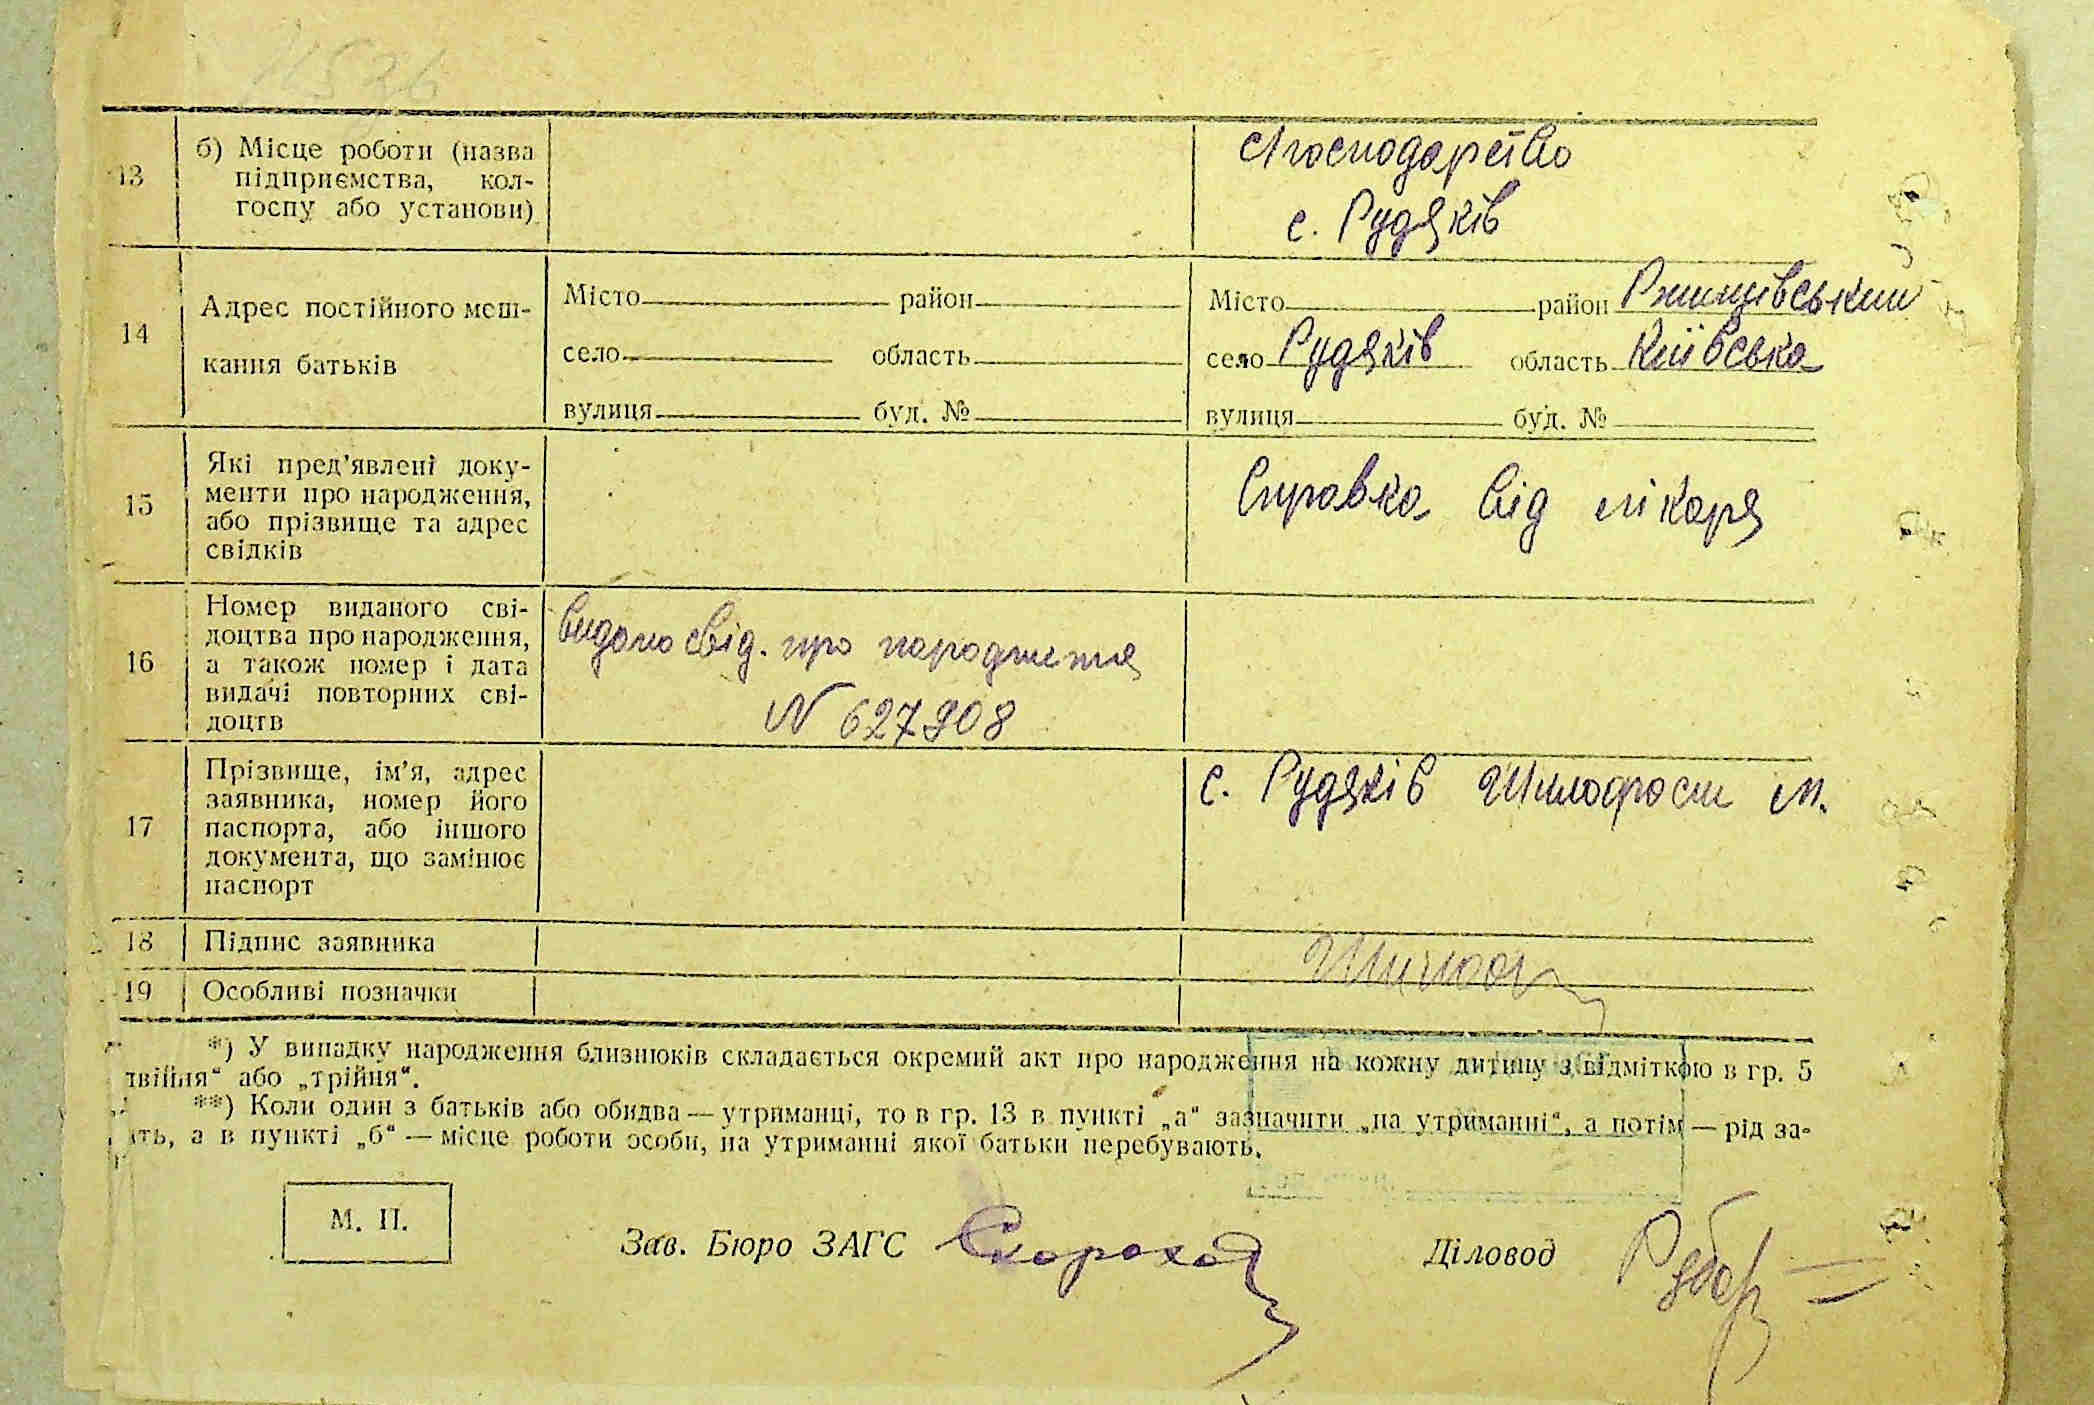 13
б) Місце роботи (назва
підприємства, кол-
госпу або установи)
с/господарство
с. Рудяків
14
Адрес постійного меш-
кання батьків
Місто район
село область
вулиця буд. №
Місто район Ржищівський
село Рудяків область Київська
вулиця буд. №
15
Які пред'явлені доку-
менти про народження,
або прізвище та адрес
свідків
Справка від лікаря
16
Номер виданого сві-
доцтва про народження,
а також номер і дата
видачі повторних сві-
доцтв
Видано свід. про народження
N 627908
17
Прізвище, ім'я, адрес
заявника, номер його
паспорта, або іншого
документа, що замінює
паспорт
с. Рудяків М.
18
Підпис заявника
19
Особливі позначки
*) У випадку народження близнюків складається окремий акт про народження на кожну дитину з відміткою в гр. 5
двійня" або „трійня".
**) Коли один з батьків або обидва — утриманці, то в гр. 13 в пункті „а" зазначити „на утриманні", а потім — рід за-
ять, а в пункті „б" — місце роботи особи, на утриманні якої батьки перебувають.
М. П.
Зав. Бюро ЗАГС Скороход
Діловод